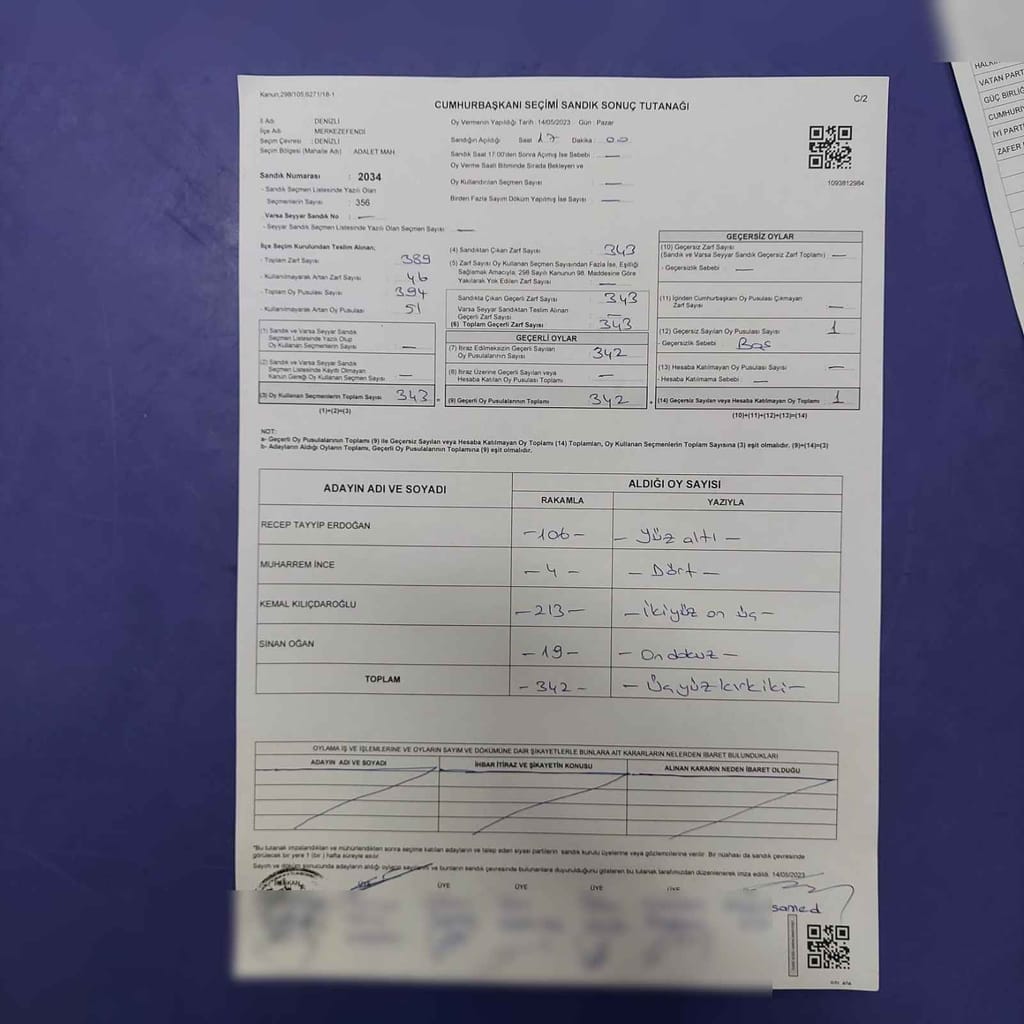 Kanun;298/105,6271/18-1
CUMHURBAŞKANI SEÇİMİ SANDIK SONUÇ TUTANAĞI
C/2
İl Adı DENİZLİ
İlçe Adı MERKEZEFENDİ
Seçim Çevresi : DENİZLİ
Seçim Bölgesi (Mahalle Adı) ADALET MAH.
Sandık Numarası : 2034
- Sandık Seçmen Listesinde Yazılı Olan
Seçmenlerin Sayısı : 356
- Varsa Seyyar Sandık No : —
- Seyyar Sandık Seçmen Listesinde Yazılı Olan Seçmen Sayısı —
Oy Vermenin Yapıldığı Tarih : 14/05/2023 - Gün : Pazar
Sandığın Açıldığı Saat 17 Dakika : 00
Sandık Saat 17:00'den Sonra Açılmış İse Sebebi —
Oy Verme Saati Bitiminde Sırada Bekleyen ve
Oy Kullandırılan Seçmen Sayısı —
Birden Fazla Sayım Döküm Yapılmış İse Sayısı —
1093812984
İlçe Seçim Kurulundan Teslim Alınan;
- Toplam Zarf Sayısı 389
- Kullanılmayarak Artan Zarf Sayısı 46
- Toplam Oy Pusulası Sayısı 394
- Kullanılmayarak Artan Oy Pusulası 51
(1) Sandık ve Varsa Seyyar Sandık
Seçmen Listesinde Yazılı Olup
Oy Kullanan Seçmenlerin Sayısı —
(2) Sandık ve Varsa Seyyar Sandık
Seçmen Listesinde Kayıtlı Olmayan
Kanun Gereği Oy Kullanan Seçmen Sayısı —
(3) Oy Kullanan Seçmenlerin Toplam Sayısı 343 =
(1)+(2)=(3)
(4) Sandıktan Çıkan Zarf Sayısı 343
(5) Zarf Sayısı Oy Kullanan Seçmen Sayısından Fazla İse, Eşitliği
Sağlamak Amacıyla, 298 Sayılı Kanunun 98. Maddesine Göre
Yakılarak Yok Edilen Zarf Sayısı —
Sandıkta Çıkan Geçerli Zarf Sayısı 343
Varsa Seyyar Sandıktan Teslim Alınan
Geçerli Zarf Sayısı —
(6) Toplam Geçerli Zarf Sayısı 343
GEÇERLİ OYLAR
(7) İtiraz Edilmeksizin Geçerli Sayılan
Oy Pusulalarının Sayısı 342
(8) İtiraz Üzerine Geçerli Sayılan veya
Hesaba Katılan Oy Pusulası Toplamı —
(9) Geçerli Oy Pusulalarının Toplamı 342 +
GEÇERSİZ OYLAR
(10) Geçersiz Zarf Sayısı
(Sandık ve Varsa Seyyar Sandık Geçersiz Zarf Toplamı) —
- Geçersizlik Sebebi —
(11) İçinden Cumhurbaşkanı Oy Pusulası Çıkmayan
Zarf Sayısı —
(12) Geçersiz Sayılan Oy Pusulası Sayısı 1
- Geçersizlik Sebebi : Boş
(13) Hesaba Katılmayan Oy Pusulası Sayısı —
- Hesaba Katılmama Sebebi : —
(14) Geçersiz Sayılan veya Hesaba Katılmayan Oy Toplamı 1
(10)+(11)+(12)+(13)=(14)
NOT:
a- Geçerli Oy Pusulalarının Toplamı (9) ile Geçersiz Sayılan veya Hesaba Katılmayan Oy Toplamı (14) Toplamları, Oy Kullanan Seçmenlerin Toplam Sayısına (3) eşit olmalıdır. (9)+(14)=(3)
b- Adayların Aldığı Oyların Toplamı, Geçerli Oy Pusulalarının Toplamına (9) eşit olmalıdır.
ADAYIN ADI VE SOYADI ALDIĞI OY SAYISI
RAKAMLA YAZIYLA
RECEP TAYYİP ERDOĞAN -106- - Yüz altı -
MUHARREM İNCE - 4 - - Dört -
KEMAL KILIÇDAROĞLU -213- - İkiyüz on üç -
SİNAN OĞAN -19- - On dokuz -
TOPLAM - 342 - - Üçyüzkırkiki -
OYLAMA İŞ VE İŞLEMLERİNE VE OYLARIN SAYIM VE DÖKÜMÜNE DAİR ŞİKAYETLERLE BUNLARA AİT KARARLARIN NELERDEN İBARET BULUNDUKLARI
ADAYIN ADI VE SOYADI İHBAR İTİRAZ VE ŞİKAYETİN KONUSU ALINAN KARARIN NEDEN İBARET OLDUĞU
*Bu tutanak imzalandıktan ve mühürlendikten sonra seçime katılan adayların ve talep eden siyasi partilerin sandık kurulu üyelerine veya gözlemcilerine verilir. Bir nüshası da sandık çevresinde
görülecek bir yere 1 (bir) hafta süreyle asılır.
Sayım ve döküm sonucunda adayların aldığı oyların sayılarını ve bunların sandık çevresinde bulunanlara duyurulduğunu gösteren bu tutanak tarafımızdan düzenlenerek imza edildi. 14/05/2023
BAŞKAN ÜYE ÜYE ÜYE ÜYE ÜYE
samed
VATAN PARTİ
GÜÇ BİRLİĞİ
CUMHURİY
İYİ PARTİ
ZAFER